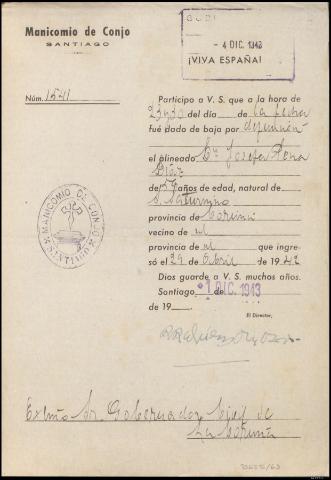 Manicomio de Conjo
SANTIAGO
- 4 DIC. 1943
¡VIVA ESPAÑA!
Núm. 1541
Participo a V. S. que a la hora de
23,30 del día de la fecha
fué dado de baja por defunción
el alineado Dª Josefa Pena
Díaz
de 59 años de edad, natural de
S. Saturnino
provincia de Coruña
vecino de id
provincia de id que ingre-
só el 29 de Abril de 1942
Dios guarde a V. S. muchos años.
Santiago, 1 DIC. 1943 de
de 19
El Director,
MANICOMIO DE CONJO
SANTIAGO
Excmo Sr. Gobernador Civil de
La Coruña